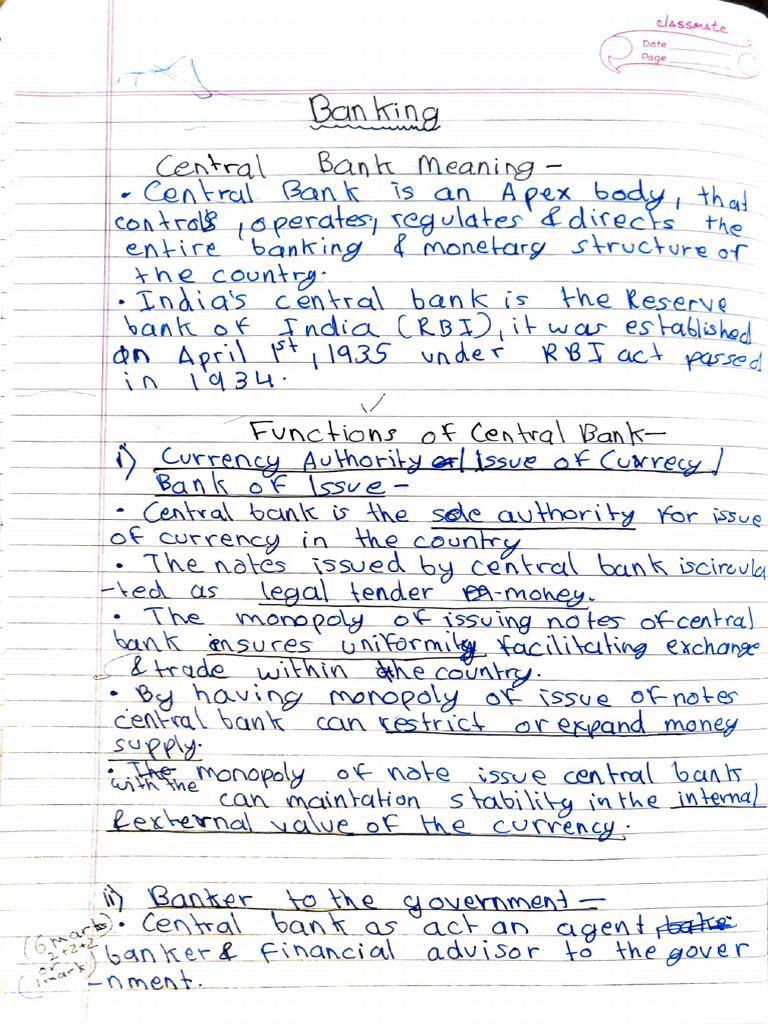 classmate
Date
Page
Banking
Central Bank Meaning -
• Central Bank is an Apex body, that
controls, operates, regulates & directs the
entire banking & monetary structure of
the country.
• India's central bank is the Reserve
bank of India (RBI), it was established
on April 1st, 1935 under RBI act passed
in 1934.
Functions of Central Bank-
i) Currency Authority or/ Issue of Currecy/
Bank of Issue -
• Central bank is the sole authority for issue
of currency in the country
• The notes issued by central bank iscircula
-ted as legal tender money.
• The monopoly of issuing notes of central
bank ensures uniformity facilitating exchange
& trade within the country.
• By having monopoly of issue of notes
central bank can restrict or expand money
supply.
• The monopoly of note issue central bank
with the can maintation stability in the internal
& external value of the currency.
ii) Banker to the government -
• Central bank as act an agent,
banker & financial advisor to the gover
-nment.
(6 marks
2+2+2
or
(1 mark)